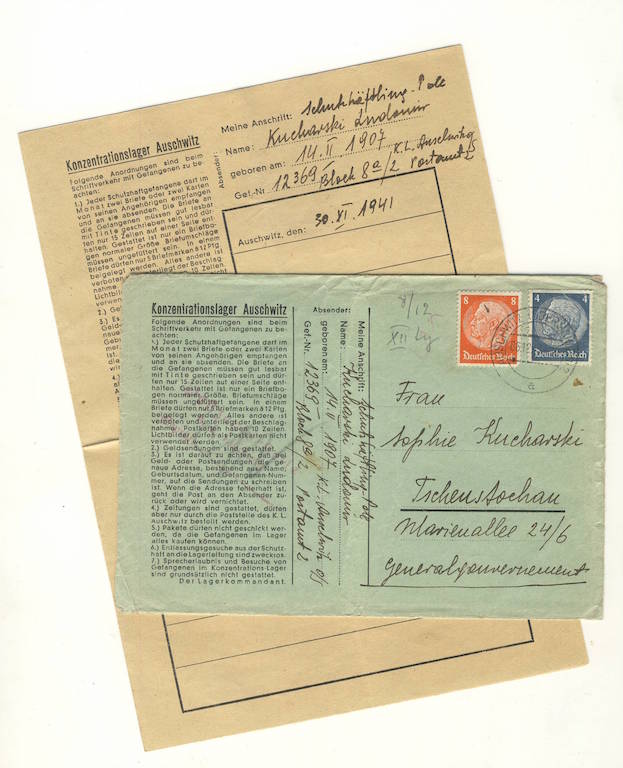 Konzentrationslager Auschwitz
Folgende Anordnungen sind beim
Schriftverkehr mit Gefangenen zu be-
achten:
1.) Jeder Schutzhaftgefangene darf im
Monat zwei Briefe oder zwei Karten
von seinen Angehörigen empfangen
und an sie absenden. Die Briefe an
die Gefangenen müssen gut lesbar
mit Tinte geschrieben sein und dür-
fen nur 15 Zeilen auf einer Seite ent-
halten. Gestattet ist nur ein Briefbo-
gen normaler Größe. Briefumschläge
müssen ungefüttert sein. In einem
Briefe dürfen nur 5 Briefmarken à 12 Pfg.
beigelegt werden. Alles andere ist
verboten
Absender:
Meine Anschrift: Schutzhäftling-Pole
Name: Kucharski
geboren am: 14. II 1907
Gef.-Nr. 12369 K.L. Auschwitz
Block 8a/2 Postamt 2
Auschwitz, den: 30. XI. 1941
Konzentrationslager Auschwitz
Folgende Anordnungen sind beim
Schriftverkehr mit Gefangenen zu be-
achten:
1.) Jeder Schutzhaftgefangene darf im
Monat zwei Briefe oder zwei Karten
von seinen Angehörigen empfangen
und an sie absenden. Die Briefe an
die Gefangenen müssen gut lesbar
mit Tinte geschrieben sein und dür-
fen nur 15 Zeilen auf einer Seite ent-
halten. Gestattet ist nur ein Briefbo-
gen normaler Größe. Briefumschläge
müssen ungefüttert sein. In einem
Briefe dürfen nur 5 Briefmarken à 12 Pfg.
beigelegt werden. Alles andere ist
verboten und unterliegt der Beschlag-
nahme. Postkarten haben 10 Zeilen.
Lichtbilder dürfen als Postkarten nicht
verwendet werden.
2.) Geldsendungen sind gestattet.
3.) Es ist darauf zu achten, daß bei
Geld- oder Postsendungen die ge-
naue Adresse, bestehend aus: Name,
Geburtsdatum, und Gefangenen-Num-
mer, auf die Sendungen zu schreiben
ist. Wenn die Adresse fehlerhaft ist,
geht die Post an den Absender zu-
rück oder wird vernichtet.
4.) Zeitungen sind gestattet, dürfen
aber nur durch die Poststelle des K. L.
Auschwitz bestellt werden.
5.) Pakete dürfen nicht geschickt wer-
den, da die Gefangenen im Lager
alles kaufen können.
6.) Entlassungsgesuche aus der Schutz-
haft an die Lagerleitung sind zwecklos.
7.) Sprecherlaubnis und Besuche von
Gefangenen im Konzentrations-Lager
sind grundsätzlich nicht gestattet.
Der Lagerkommandant.
Absender:
Meine Anschrift: Schutzhäftling Pole
Name: Kucharski
geboren am: 14. II 1907 K.L. Auschwitz
Gef.-Nr. 12369 Block 8a/2 Postamt 2
8/12
XII
8 8
Deutsches Reich
4 4
Deutsches Reich
a
Frau
Sophie Kucharski
Tschenstochau
Marienallee 24/6
Generalgouvernement